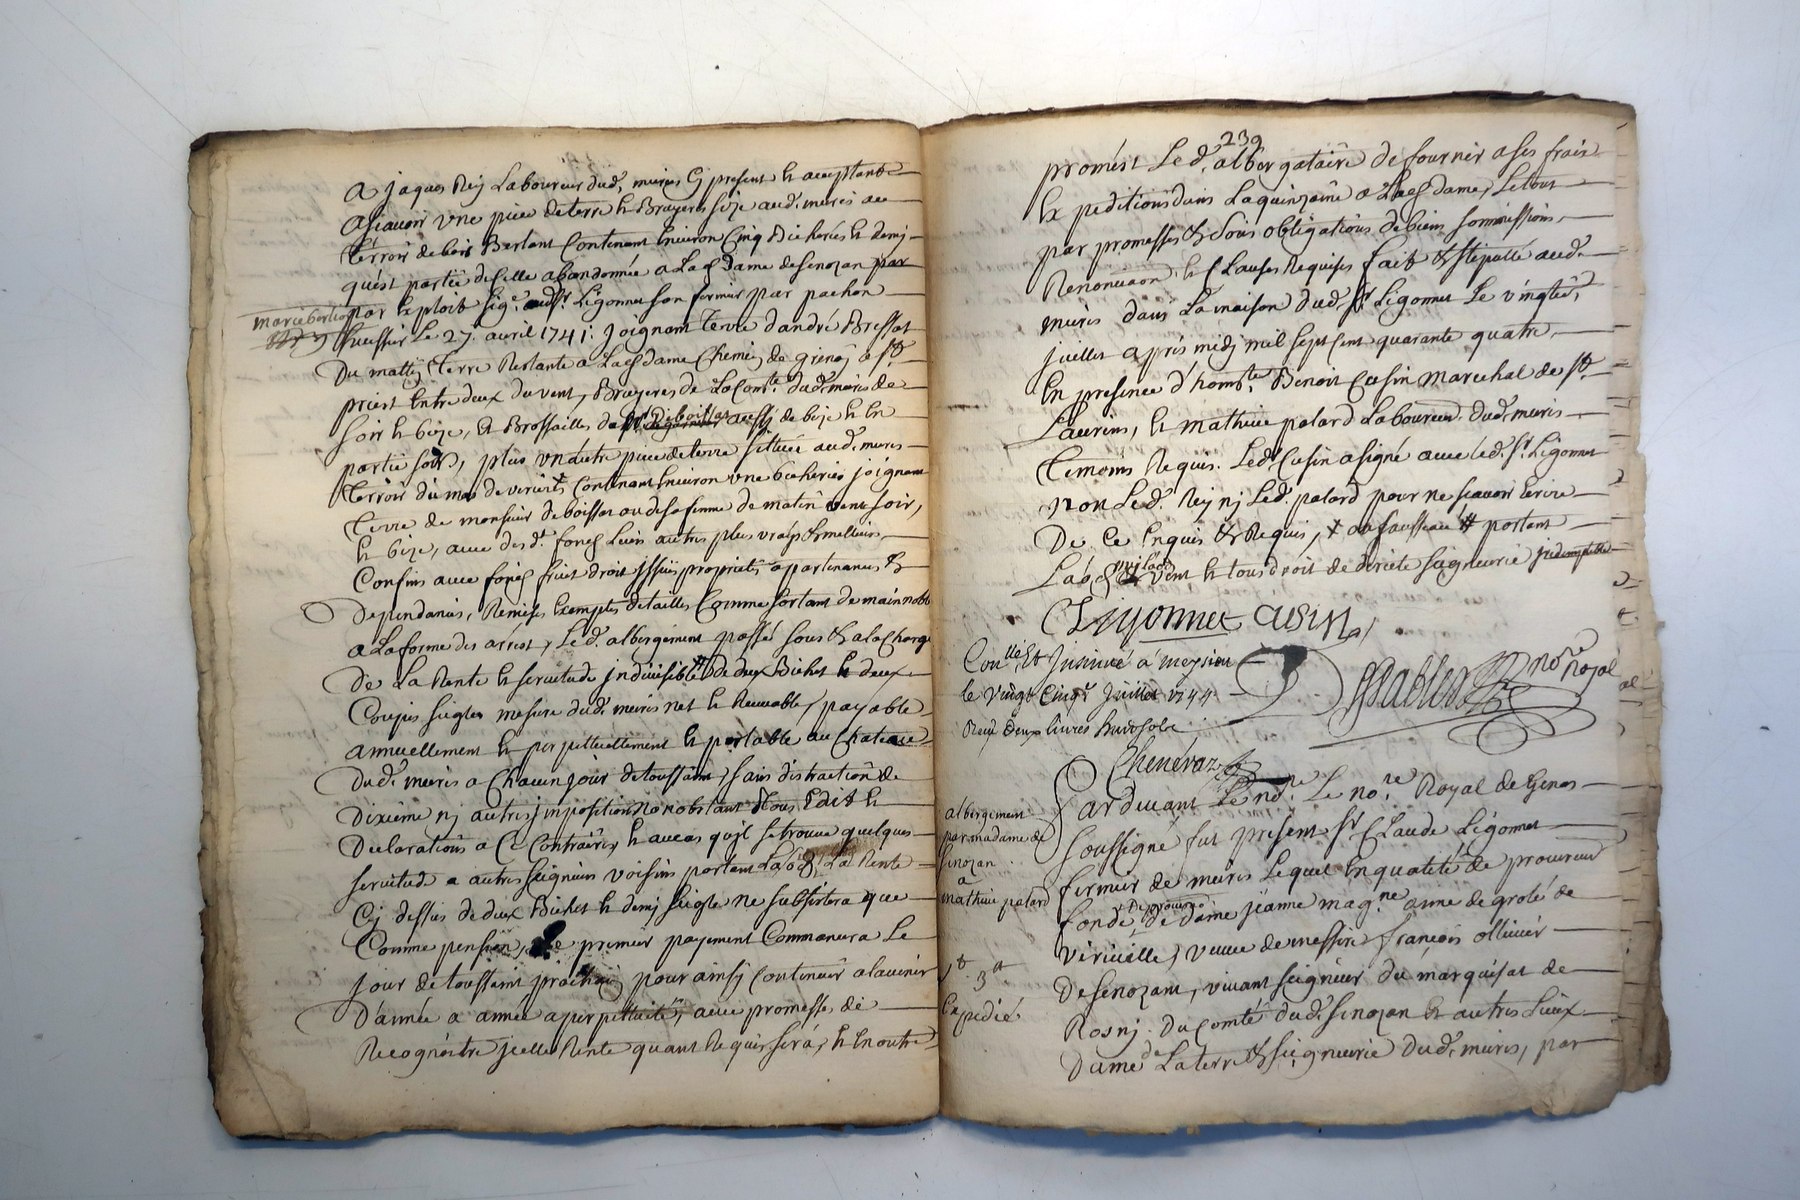 a jaques Rey Laboureur dud. mures Cy present & acceptant
a sçavoir une piece de terre & Bruyeres size aud. mures au
terroir de bois Berlant Contenant Environ Cinq Bicherées & demy
qu'est partie de Celle abandonnée a Lad. Dame de Senozan par
marie berlioz
par Exploit sig.e aud. Sr. Ligonnet son fermier par pachon
huissier Le 27. avril 1741: Joignant terre d'andré Bressat
Du matin, Terre Restante a Lad. dame Chemin de grenay a St.
priest Entre deux du vent, Bruyeres de La Com.té dud. mures de
soir & bize, & Brossailles de Sr. Deboissat aussy de bize & En
partie soir, plus un autre piece de terre scittuée aud. mures
terroir du mas de Contenant Environ une bicherée joignant
Terre de monsieur de boissat ou de sa femme de matin vent soir,
& bize, avec desd. fonds Leurs autres plus vrays & meilleurs
Confins avec fonds fruit droit Issues proprietés apartenances &
Dependances, Remises Exemptes de tailles Comme sortant de main noble
a La forme des arrest, Led. albergement passés sous & a la Charge
De La Rente & servitude indivisible # De deux Bichet & deux
Coupes seigles mesure dud. mures net & Recevable, payable
annuellement & perpetuellement & portable au Chateau
Dud. mures a Chacun jour de toussaint, sans distraction de
Dixième ny autres impositions nonobstant tous Edit &
Declarations a Ce Contraires, & au cas qu'il se trouve quelques
servitude a autres seigneurs voisins portant Laods, La Rente
Cy dessus de deux Bichet & demy seigle ne subsistera que
Comme pension, Le premier payement Commancera Le
jour de toussaint prochain pour ainsy Continuer a l'avenir
D'année a année a perpettuité, avec promesse de
Recognoitre jcelle Rente quant Requis sera, & En outre
239
promèst Led. albergataire de fournir a ses frais
Expeditions dans La quinzaine a Lad. dame, Le tout
par promesses & sous obligations de biens sommissions,
Renonciaon. & Clauses Requises fait & stipullé aud.
mures dans La maison dud. Sr. Ligonnet Le vingt
juillet après midy mil sept Cent quarante quatre,
En presence d'hom.te Benoit Cusin Marechal de St.
Laurens, & mathieu palard Laboureur dud. mures
Temoins Requis. Led. Cusin a signé avec led. Sr. Ligonnet
non Led. Rey ny Led. palard pour ne sçavoir Ecrire
De Ce Enquis & Requis, # portant
Laods & vent & tous droit de directe seigneurie
C Ligonnet Cusin
Con.llé Et Insinué á meysieu
le Vingt Cinq.e Juillet 1744
Reçu Deux livres huit sols
Chenévaz
no.re Royal
albergement
par madame de
Senozan
a
mathieu palard
Expedié
Pardevant Le no.re Royal de Genas
soussigné fut présent Sr. Claude Ligonnet
fermier de mures Lequel En qualité de procureur
fondé de dame jeanne mag.ne anne de groleé de
viriville, veuve de messire françois ollivier
De Senozant, vivant seigneur du marquisat de
Rosny. Du Comté dud. Senozan & autres Lieux
Dame de La terre & seigneurie dud. mures, par